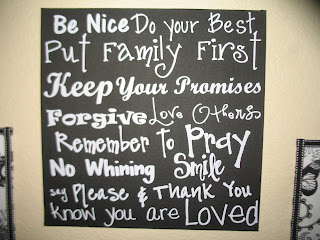 Be Nice Do your Best
Put Family First
Keep Your Promises
Forgive Love Others
Remember to Pray
No Whining Smile
say Please & Thank You
Know you are Loved